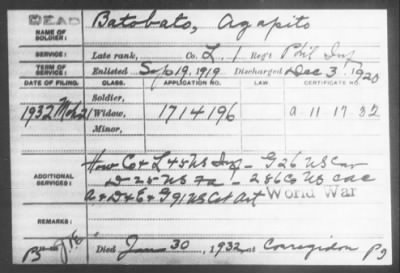 DEAD
Batobato, Agapito
NAME OF SOLDIER:
SERVICE: Late rank, Co. L. 1 Reg't Phil Inf
TERM OF SERVICE: Enlisted Sep 19, 1919 Discharged Dec 3, 1920
DATE OF FILING. CLASS. APPLICATION NO. LAW. CERTIFICATE NO.
Soldier,
1932 Mch 21 Widow, 1714196 a 11 17 32
Minor,
ADDITIONAL SERVICES:
How Co & L 45 US Inf - G 26 US Cav
D - 25 US Fa - 286 Co US CAC
a & D & E & G 91 US Cst Art
World War
REMARKS:
Died June 30, 1932, at Corregidor P I